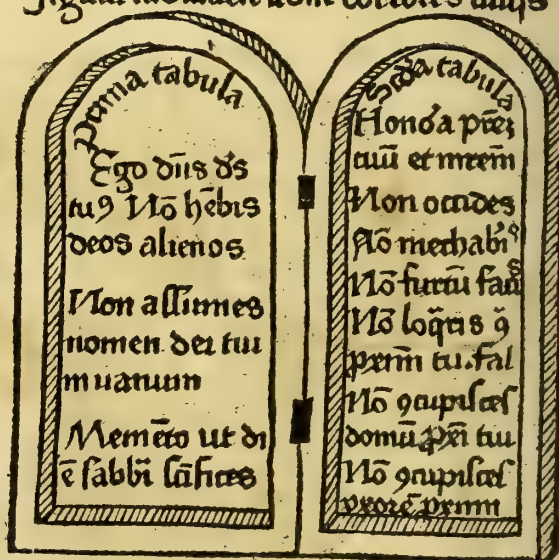 Prima tabula
Ego dn̄s ds̄
tuꝰ Nō hēbis
deos alienos
Non assumes
nomen dei tui
in uanum
Memēto ut di
ē sabbī sc̄ifices
Scd̄a tabula
Honōa prēꝫ
tuū et mrēm
Non occides
Nō mechabīꝰ
Nō furtū faci
Nō loq̄ris ꝯ̄
prxm̄ tu. fal
Nō ꝯcupisces
domū pxī tui
Nō ꝯcupisces
vxorē pximi